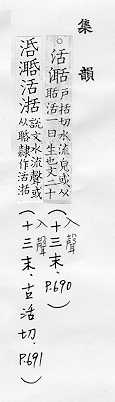 集韻
活
戶括切水流皃或从
聒活一曰生也文二十
(入聲十三末.P.690)
活
說文水流聲或
从聒隸作活
(入聲十三末.古活切.P.691)